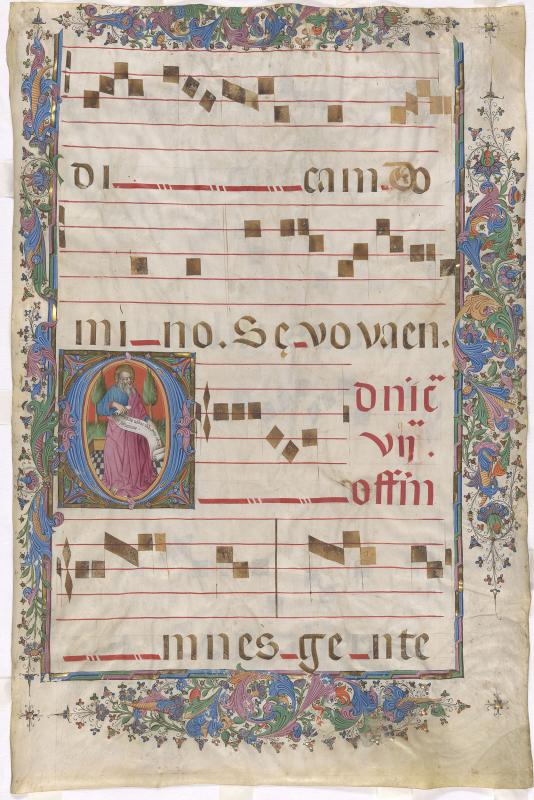 di cam. Do
mi no. Se vo vaen.
O
dnic̄
vij.
offin
mnes ge nte